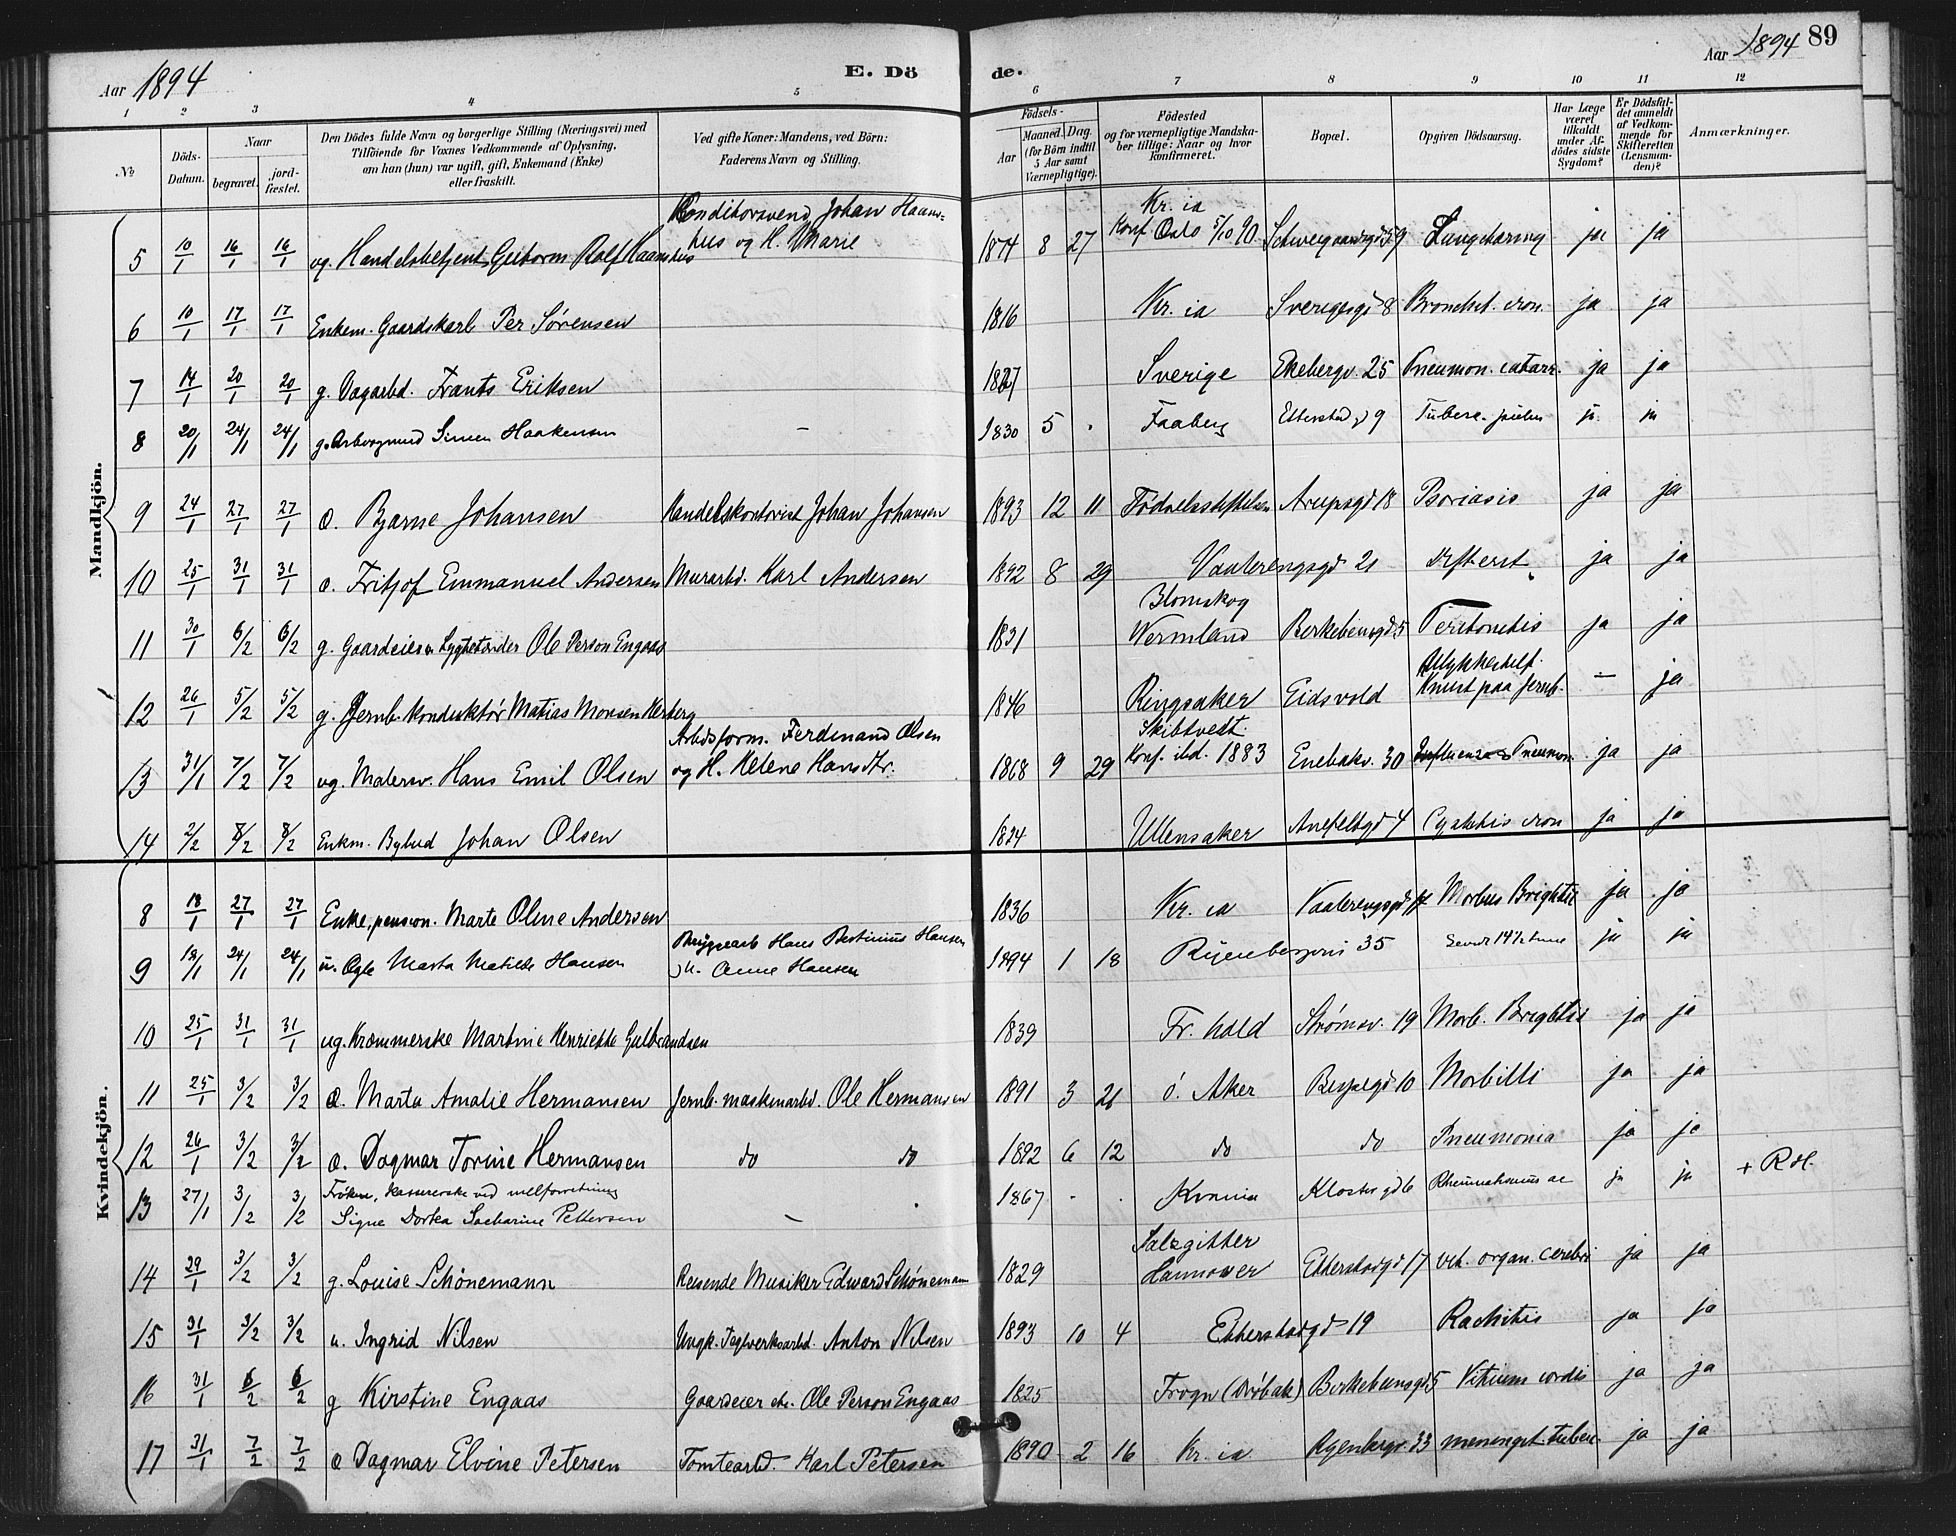 Aar 1894
E. Dö
de.
Aar 1894
89
1 2 3 4 5 6 7 8 9 10 11 12
№
Döds-
Datum.
Naar
begravet.
jord-
fæstet.
Den Dödes fulde Navn og borgerlige Stilling (Næringsvei) med
Tilföiende for Voxnes Vedkommende af Oplysning,
om han (hun) var ugift, gift, Enkemand (Enke)
eller fraskilt.
Ved gifte Koner: Mandens, ved Börn:
Faderens Navn og Stilling.
Födsels-
Aar
Maaned. Dag.
(for Börn indtil
5 Aar samt
Værnepligtige).
Födested
og for værnepligtige Mandska-
ber tillige: Naar og hvor
konfirmeret.
Bopæl.
Opgiven Dödsaarsag.
Har Læge
været
tilkaldt
under Af-
dödes sidste
Sygdom?
Er Dödsfal-
det anmeldt
af Vedkom-
mende for
Skifteretten
(Lensman-
den)?
Anmærkninger.
Mandkjön.
Konditorsvend Johan Haams- Kr. ia
5 10/1 16/1 16/1 ug. Handelsbetjent Guttorm Rolf Haamshus hus og H. Marie 1874 8 27 Konf. Oslo 5/10 90 Schweigaardsgd 59 Lungetæring ja ja
6 10/1 17/1 17/1 Enkem. Gaardskarl Per Sørensen 1816 Kr. ia Sverigesgd 8 Bronchit. cron. ja ja
7 14/1 20/1 20/1 g. Dagarbd. Frants Eriksen 1827 Sverige Ekebergv. 25 Pneumon. catarr. ja ja
8 20/1 24/1 24/1 g. Simen Haakensen – 1830 5 . Faaberg Etterstad gd 9 Tuberc. ja ja
9 24/1 27/1 27/1 æ. Bjarne Johansen Handelskontorist Johan Johansen 1893 12 11 Fødselsstiftelsen Arupsgd 18 Psoriasis ja ja
10 25/1 31/1 31/1 æ. Fritjof Emmanuel Andersen Murarbd. Karl Andersen 1892 8 29 Vaalerengsgd 21 Difterit ja ja
Blomskog
11 30/1 6/2 6/2 g. Gaardeier & Lygtetænder Ole Person Engaas 1831 Wermland Birkebeinsgd 5 Peritonitis ja ja
Ulykkestilf.
12 26/1 5/2 5/2 g. Jernb. Konduktør Matias Monsen Herberg 1846 Ringsaker Eidsvold Knust paa Jernb. – ja
Arbdsform. Ferdinand Olsen Skibtvedt
13 31/1 7/2 7/2 ug. Malersv. Hans Emil Olsen og H. Helene Hans Dr. 1868 9 29 Konf. ibd. 1883 Enebakv. 30 Influenza & Pneumon. ja ja
14 2/2 8/2 8/2 Enkm. Bybud Johan Olsen 1824 Ullensaker Anefeltsgd 4 Cystitis cron ja ja
Kvindekjön.
8 18/1 27/1 27/1 Enke, pension. Marte Oline Andersen 1836 Kr. ia Vaalerengsgd Morbus Brightii ja ja
Bryggearb Hans Bertinius Hansen
9 18/1 24/1 24/1 u. Ogle Marta Matilde Hansen H. Anne Hansen 1894 1 18 Ryenbergvei 35 Levede 14½ time ja ja
10 25/1 31/1 31/1 ug. Kræmmerske Martine Henriette Gulbrandsen 1839 Fr. hald Strømsv. 19 Morb. Brightii ja ja
11 25/1 3/2 3/2 æ. Marta Amalie Hermansen Jernb. maskinarbd. Ole Hermansen 1891 3 21 ö. Aker Bispegd 10 Morbilli ja ja
12 26/1 3/2 3/2 æ. Dagmar Torine Hermansen do do 1892 6 12 do do Pneumonia ja ja
Frøken, kassererske ved melforretning
13 27/1 3/2 3/2 Signe Dorka Sacharine Pettersen – 1867 . . Kvania Klostergd 6 Rheumatismus ac ja ja + R H.
Salzgitter
14 29/1 3/2 3/2 g. Louise Schönemann Reisende Musiker Edward Schönemann 1829 Hannover Etterstadgd 17 vit. organ. cerebri ja ja
15 31/1 3/2 3/2 u. Ingrid Nilsen Ungk. Teglverksarbd. Anton Nilsen 1893 10 4 Etterstadgd 19 Rachitis ja ja
16 31/1 6/2 6/2 g Kirstine Engaas Gaardeier etc. Ole Person Engaas 1825 Frogn (Drøbak) Birkebeinsgd 5 Vitium cordis ja ja
17 31/1 7/2 7/2 æ Dagmar Elvine Petersen Tomtearbd. Karl Petersen 1890 2 16 Kr. ia Ryenbergv. 33 meningit. tuberc. ja ja